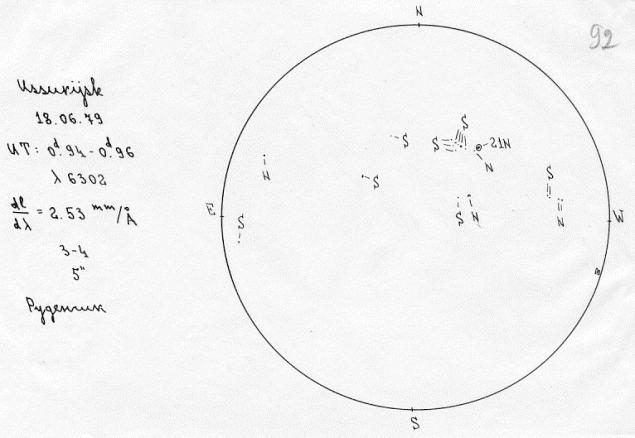 Ussurijsk
18.06.79
UT: 0ᵈ.94-0ᵈ.96
λ 6302
dl/dλ = 2.53 mm/Å
3-4
5"
Руденчик
92
N
S
S
S
21N
N
N
S
S
E
S
S
N
N
W
S